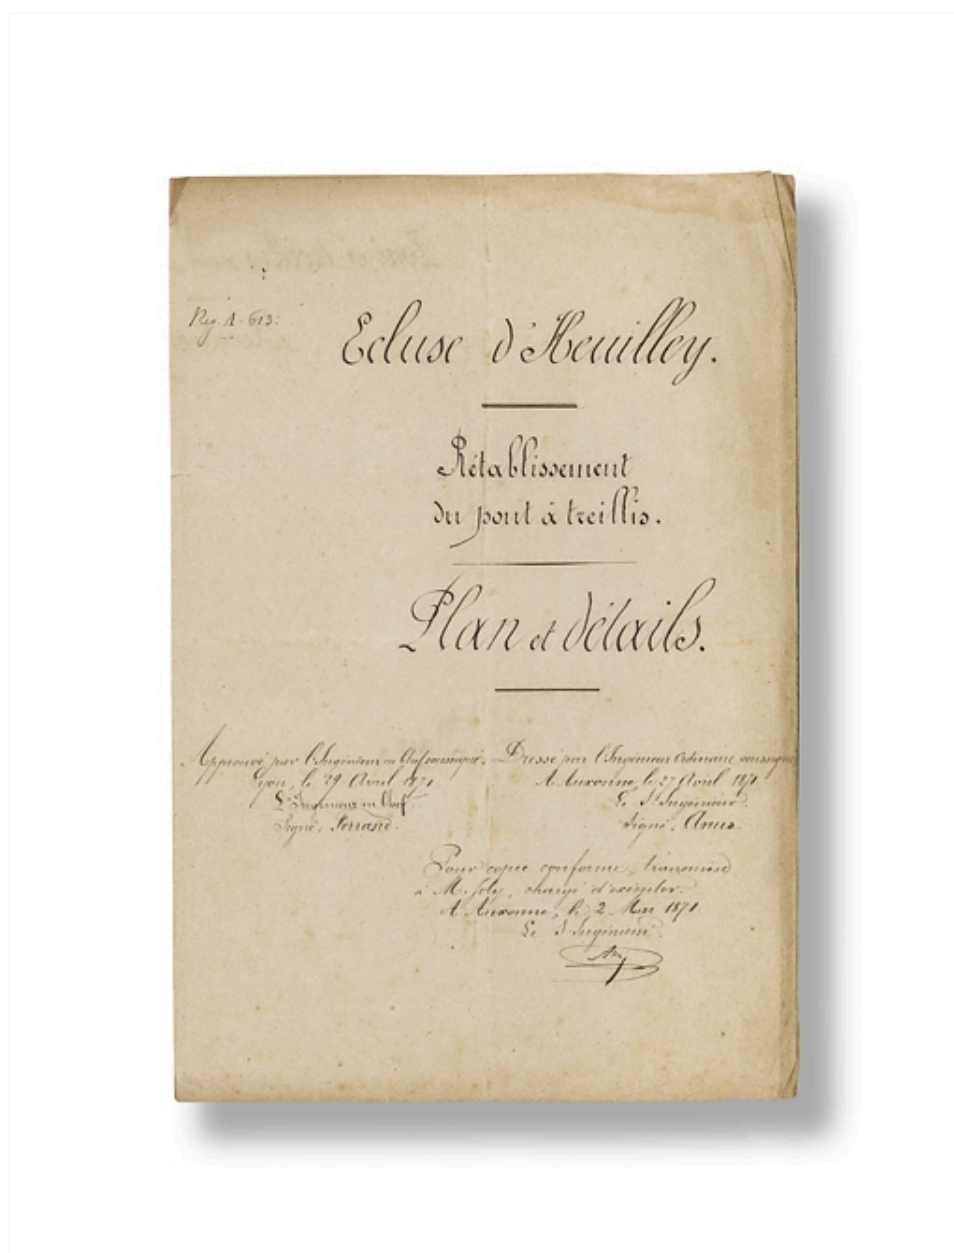 Reg. A. 613.
Ecluse d'Heuilley.
Rétablissement
du pont à treillis.
Plan et détails.
Approuvé par l'Ingénieur en Chef soussigné.
Lyon, le 29 Avril 1871
L'Ingénieur en Chef.
Signé:
Dressé par l'Ingénieur Ordinaire soussigné
A Auxonne, le 27 Avril 1871
Le S. Ingénieur
Signé:
Pour copie conforme transmise
à M. Joly, chargé d'exécuter.
A Auxonne, le 2 Mai 1871
Le S. Ingénieur.